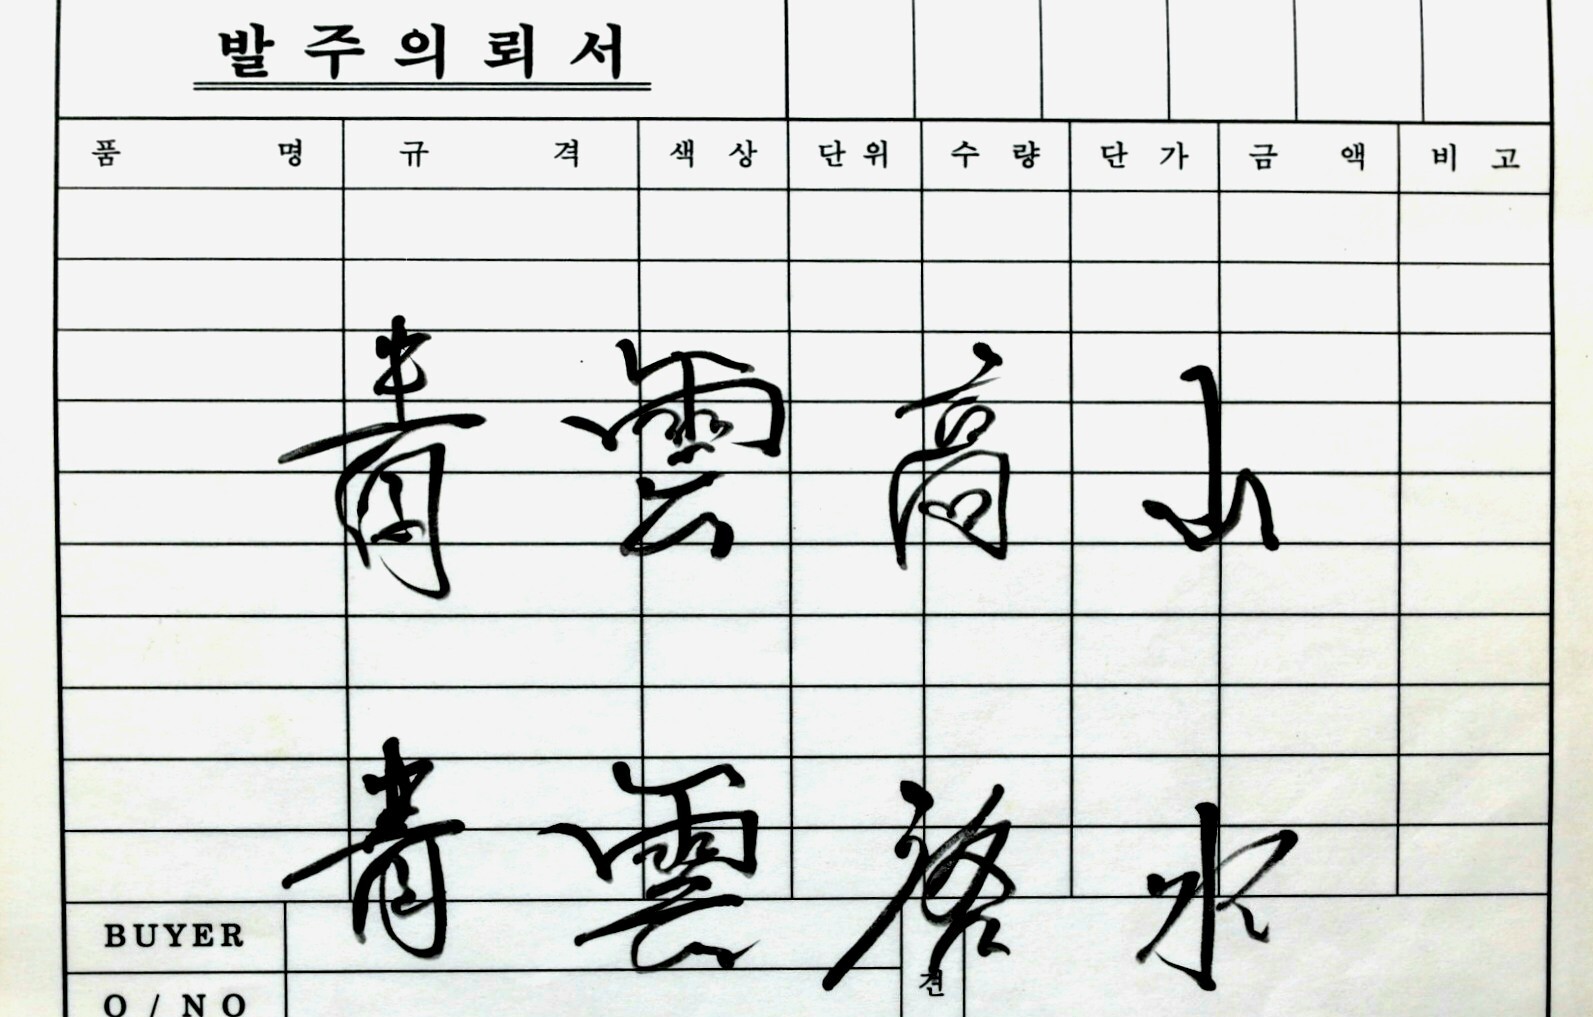 발주의뢰서
품명 규격 색상 단위 수량 단가 금액 비고
青雲高山
青雲 水
BUYER
견
O / NO